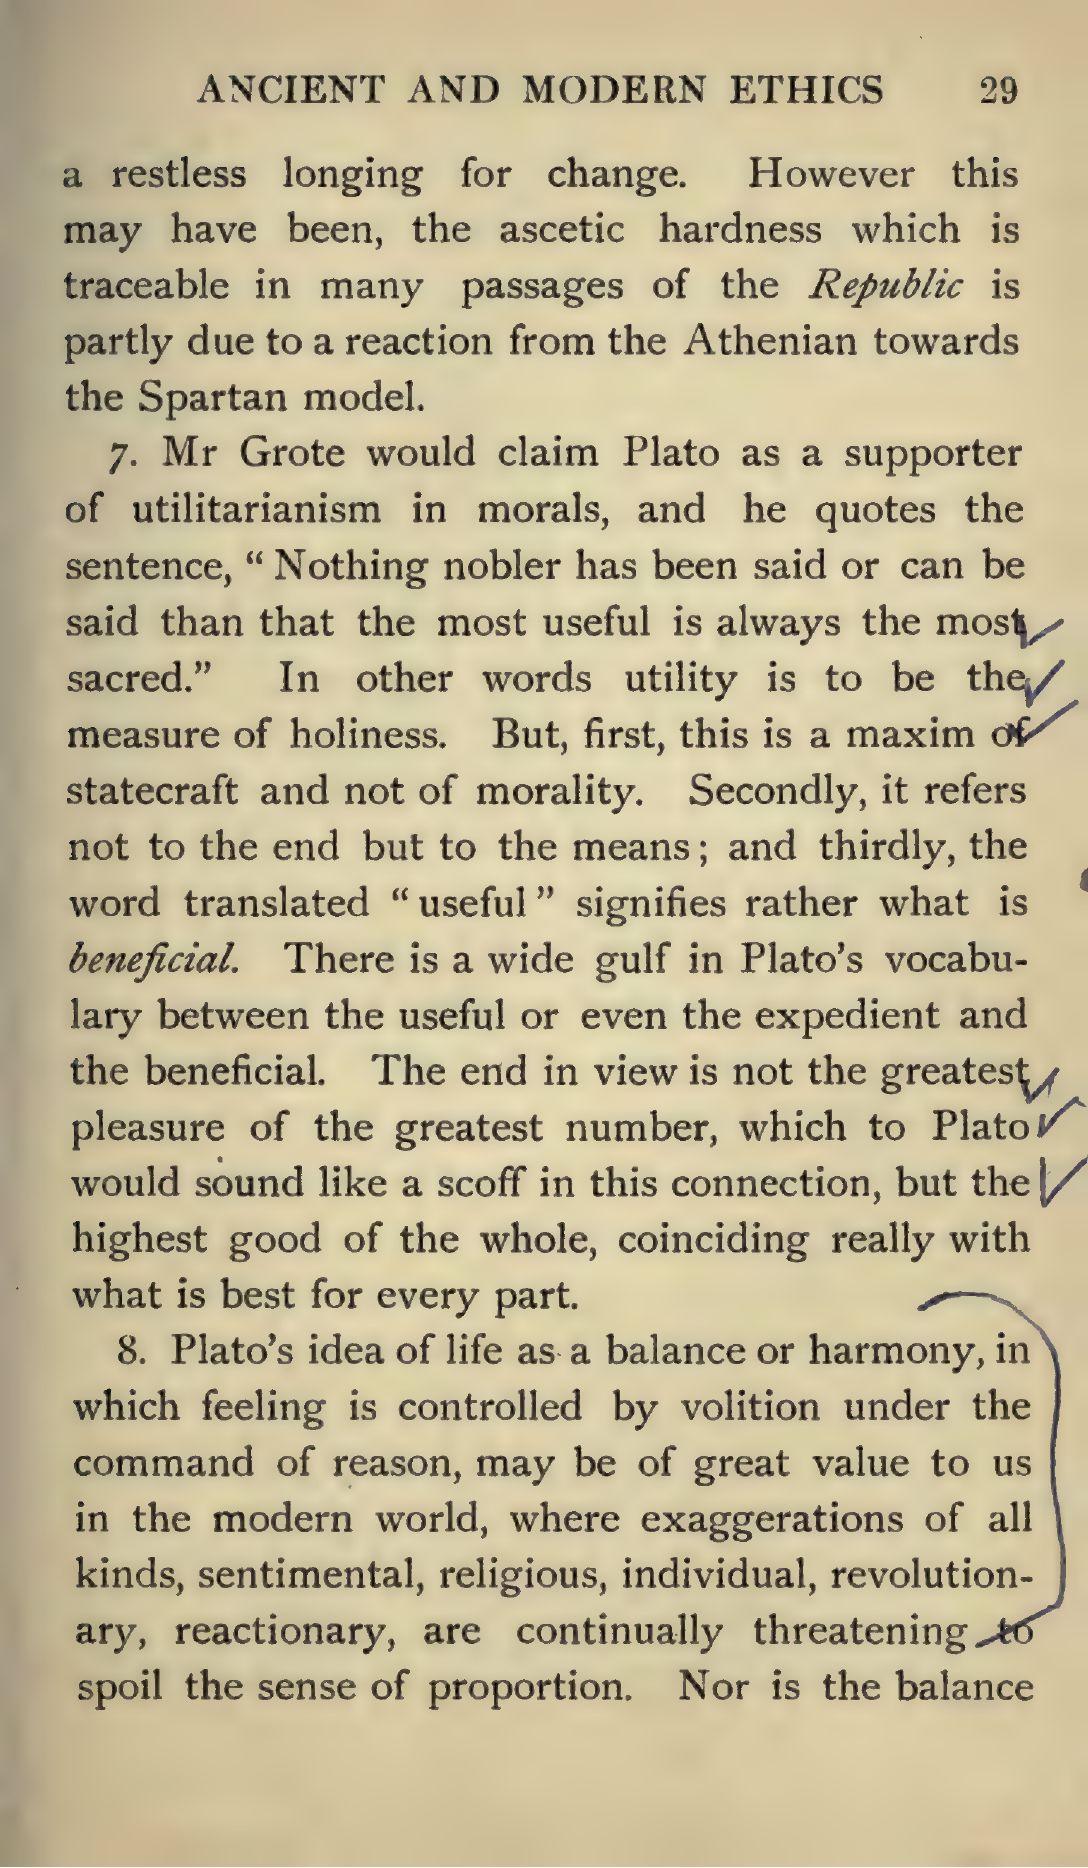 ANCIENT AND MODERN ETHICS 29
a restless longing for change. However this
may have been, the ascetic hardness which is
traceable in many passages of the Republic is
partly due to a reaction from the Athenian towards
the Spartan model.
7. Mr Grote would claim Plato as a supporter
of utilitarianism in morals, and he quotes the
sentence, “ Nothing nobler has been said or can be
said than that the most useful is always the most
sacred.” In other words utility is to be the
measure of holiness. But, first, this is a maxim of
statecraft and not of morality. Secondly, it refers
not to the end but to the means; and thirdly, the
word translated “ useful ” signifies rather what is
beneficial. There is a wide gulf in Plato’s vocabu-
lary between the useful or even the expedient and
the beneficial. The end in view is not the greatest
pleasure of the greatest number, which to Plato
would sound like a scoff in this connection, but the
highest good of the whole, coinciding really with
what is best for every part.
8. Plato’s idea of life as a balance or harmony, in
which feeling is controlled by volition under the
command of reason, may be of great value to us
in the modern world, where exaggerations of all
kinds, sentimental, religious, individual, revolution-
ary, reactionary, are continually threatening to
spoil the sense of proportion. Nor is the balance